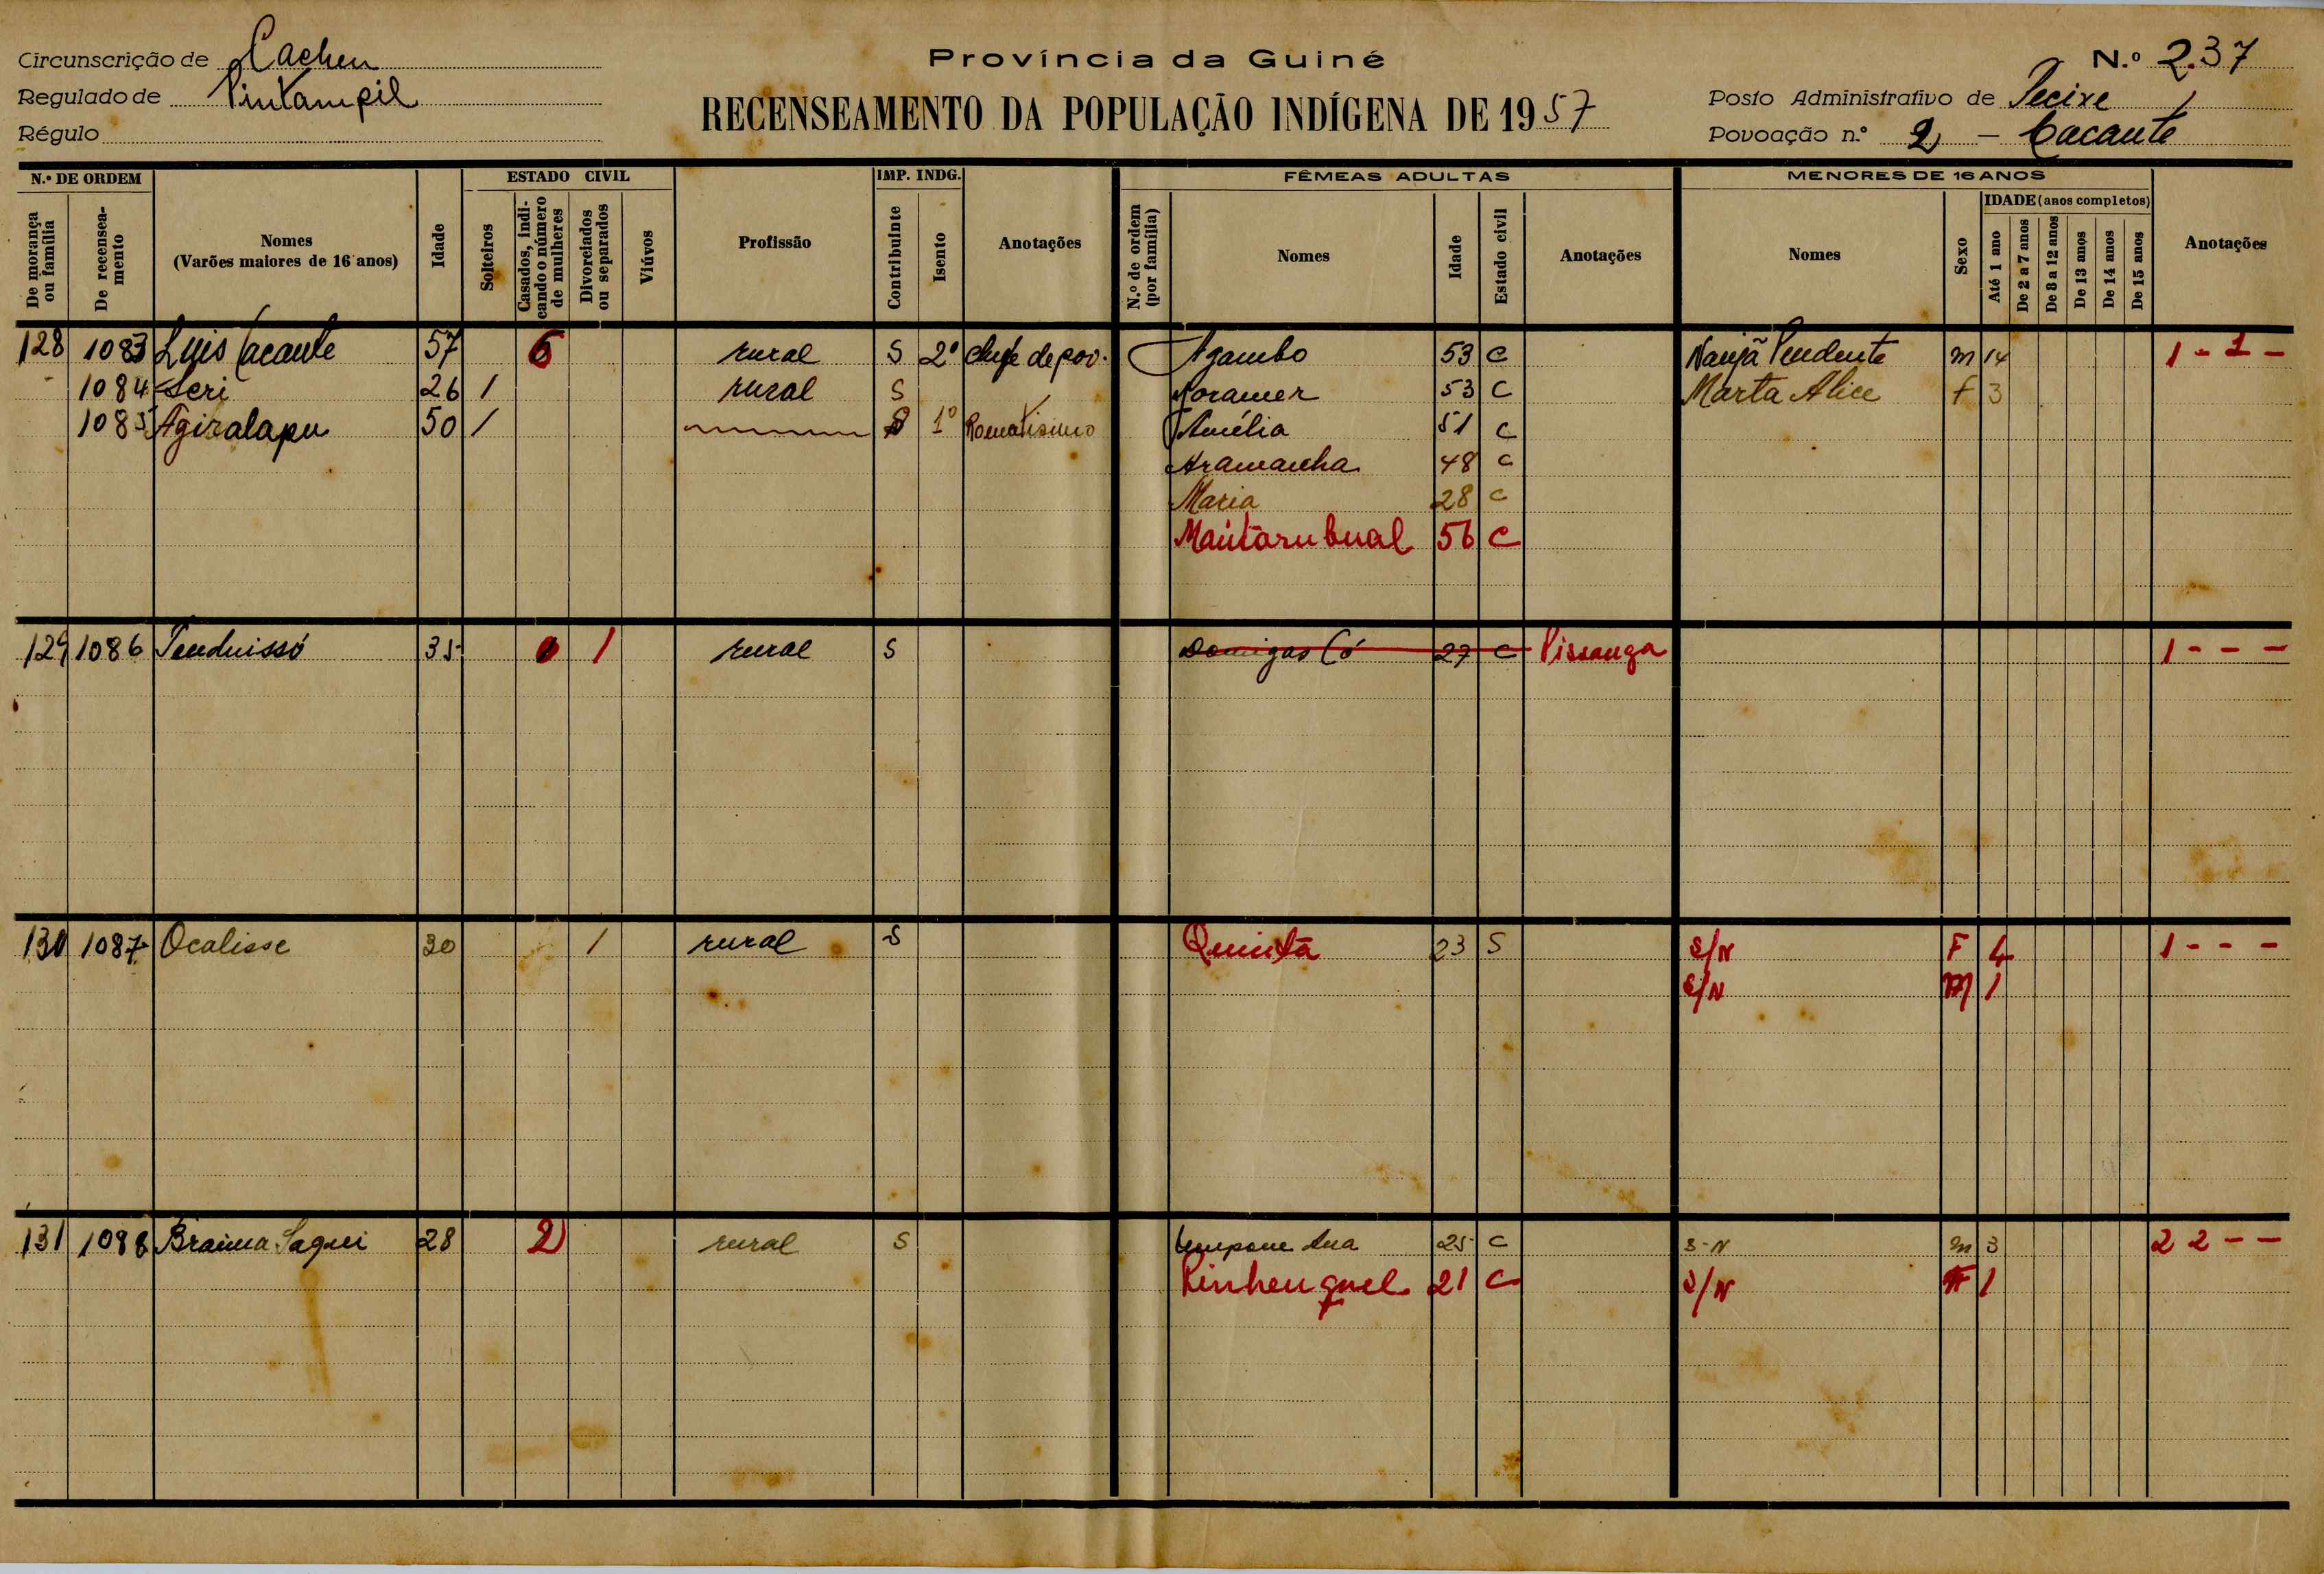 Circunscrição de Cacheu
Regulado de Pintampil
Régulo
Província da Guiné
RECENSEAMENTO DA POPULAÇÃO INDÍGENA DE 1957
N.º 237
Posto Administrativo de Pecixe
Povoação n.º 2 - Cacante
N.º DE ORDEM
De morança ou família
De recenseamento
Nomes
(Varões maiores de 16 anos)
Idade
ESTADO CIVIL
Solteiros
Casados, indicando o número de mulheres
Divorciados ou separados
Viúvos
Profissão
IMP. INDG.
Contribuinte
Isento
Anotações
FÊMEAS ADULTAS
N.º de ordem (por família)
Nomes
Idade
Estado civil
Anotações
MENORES DE 16 ANOS
Nomes
Sexo
IDADE (anos completos)
Até 1 ano
De 2 a 7 anos
De 8 a 12 anos
De 13 anos
De 14 anos
De 15 anos
Anotações
128 1083 Luis Cacante 57 6 rural S 2º chefe de pov. Agambo 53 C Naujã Pendente m 14 1 - 1 -
1084 Seri 26 1 rural S Moramer 53 C Marta Alice F 3
1085 Agiralapu 50 1 1º Romatisimo Amélia 51 C
Aramancha 48 C
Maria 28 C
Maútarubual 56 C
129 1086 Tenduissó 35 1 rural S Domigas Có 27 C Pissanga 1 - - -
130 1087 Ocalisse 30 1 rural S Quintã 23 S S/N F 4 1 - - -
S/N M 1
131 1088 Braima Saqui 28 2 rural S Ana 25 C S-N m 3 2 2 - -
21 C S/N F 1